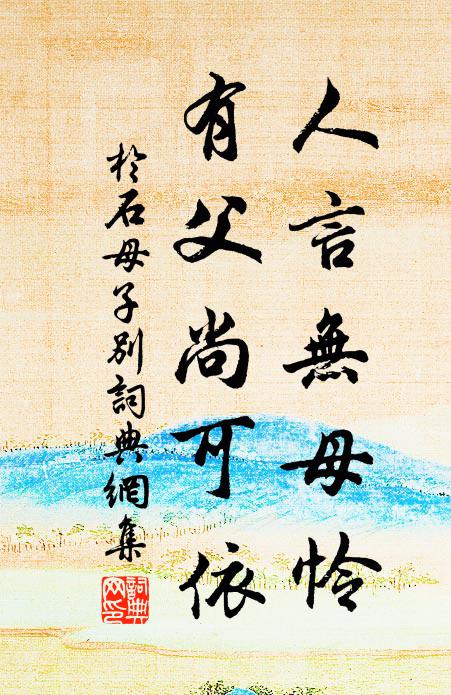 人言無母怜
有父尚可依
於石母子別詞典網集
詞典